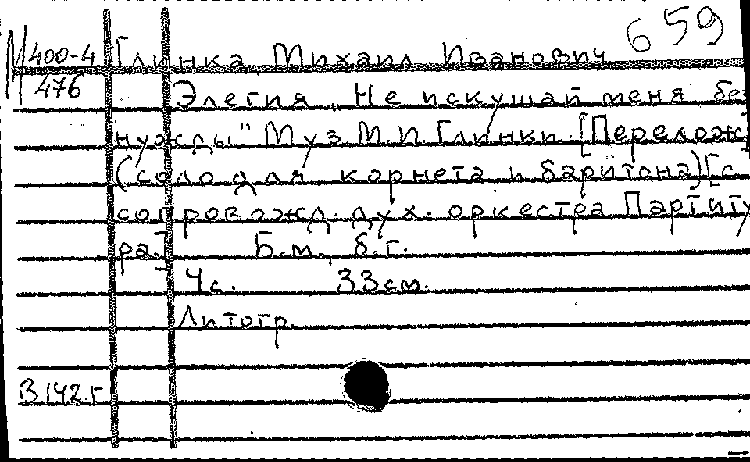 659
М 400-4 Глинка, Михаил Иванович
476 Элегия „Не искушай меня без
нужды" Муз. М.И Глинки. [Перелож.]
(соло для корнета и баритона) [с
сопровожд. дух. оркестра Партиту
ра.] Б.м., б.г.
4с. 33см.
Литогр.
В 142.г